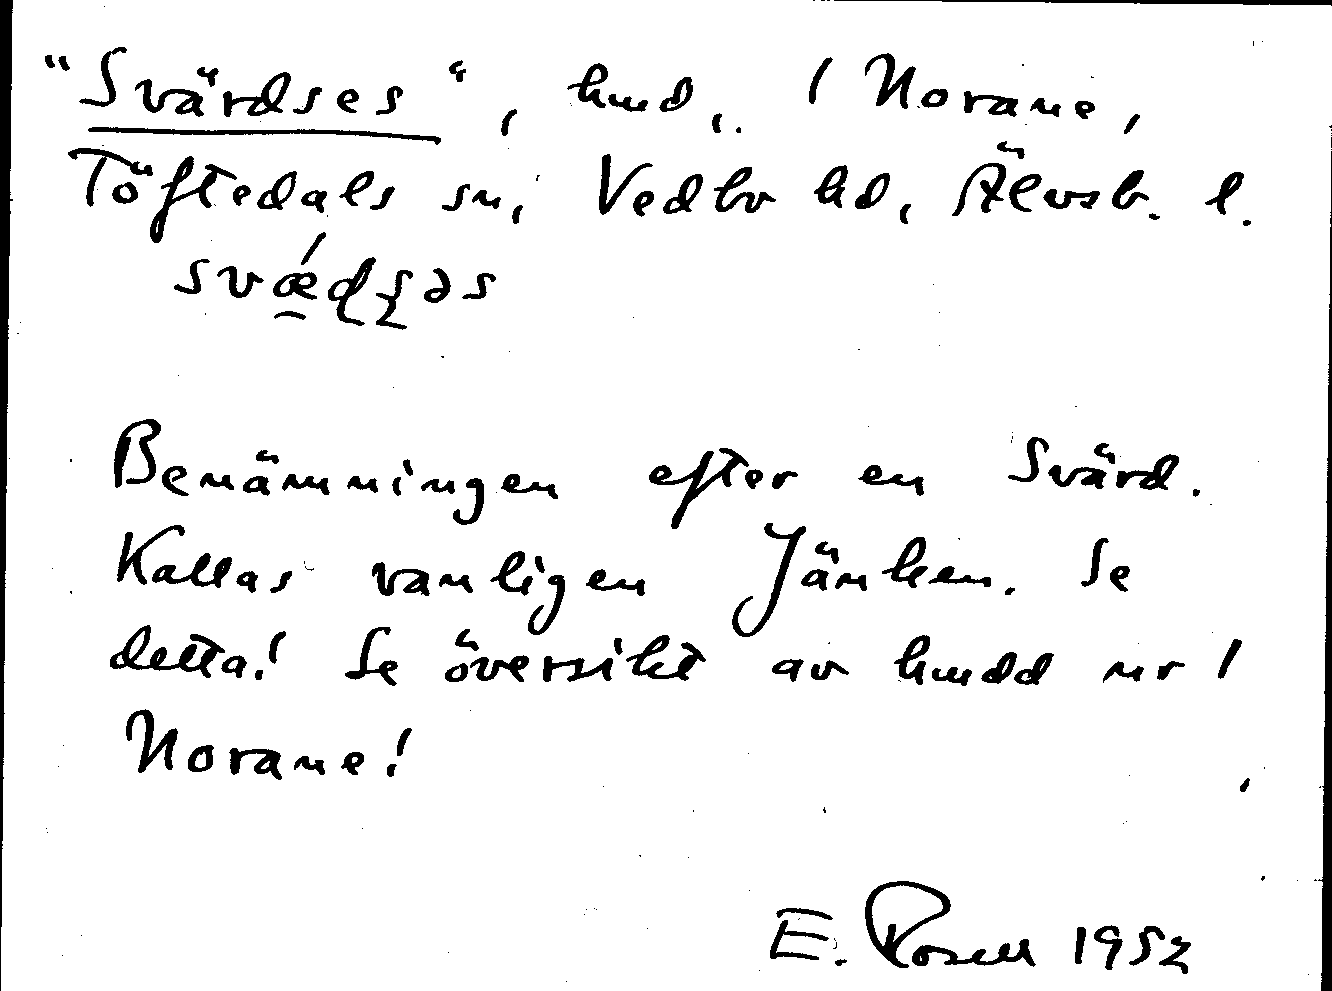 "Svärdses", hmd, i Norane,
Töftedals sn, Vedbo hd, Älvsb. l.
Benämningen efter en Svärd.
Kallas vanligen Jänken. Se
detta! Se översikt av hmdd nr 1
Norane!
E. Rosell 1952